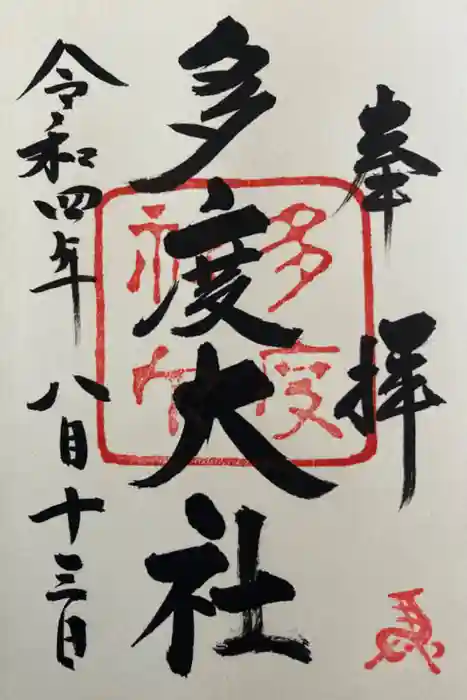 奉拝
多度大社
多度
神社
令和四年八月十三日